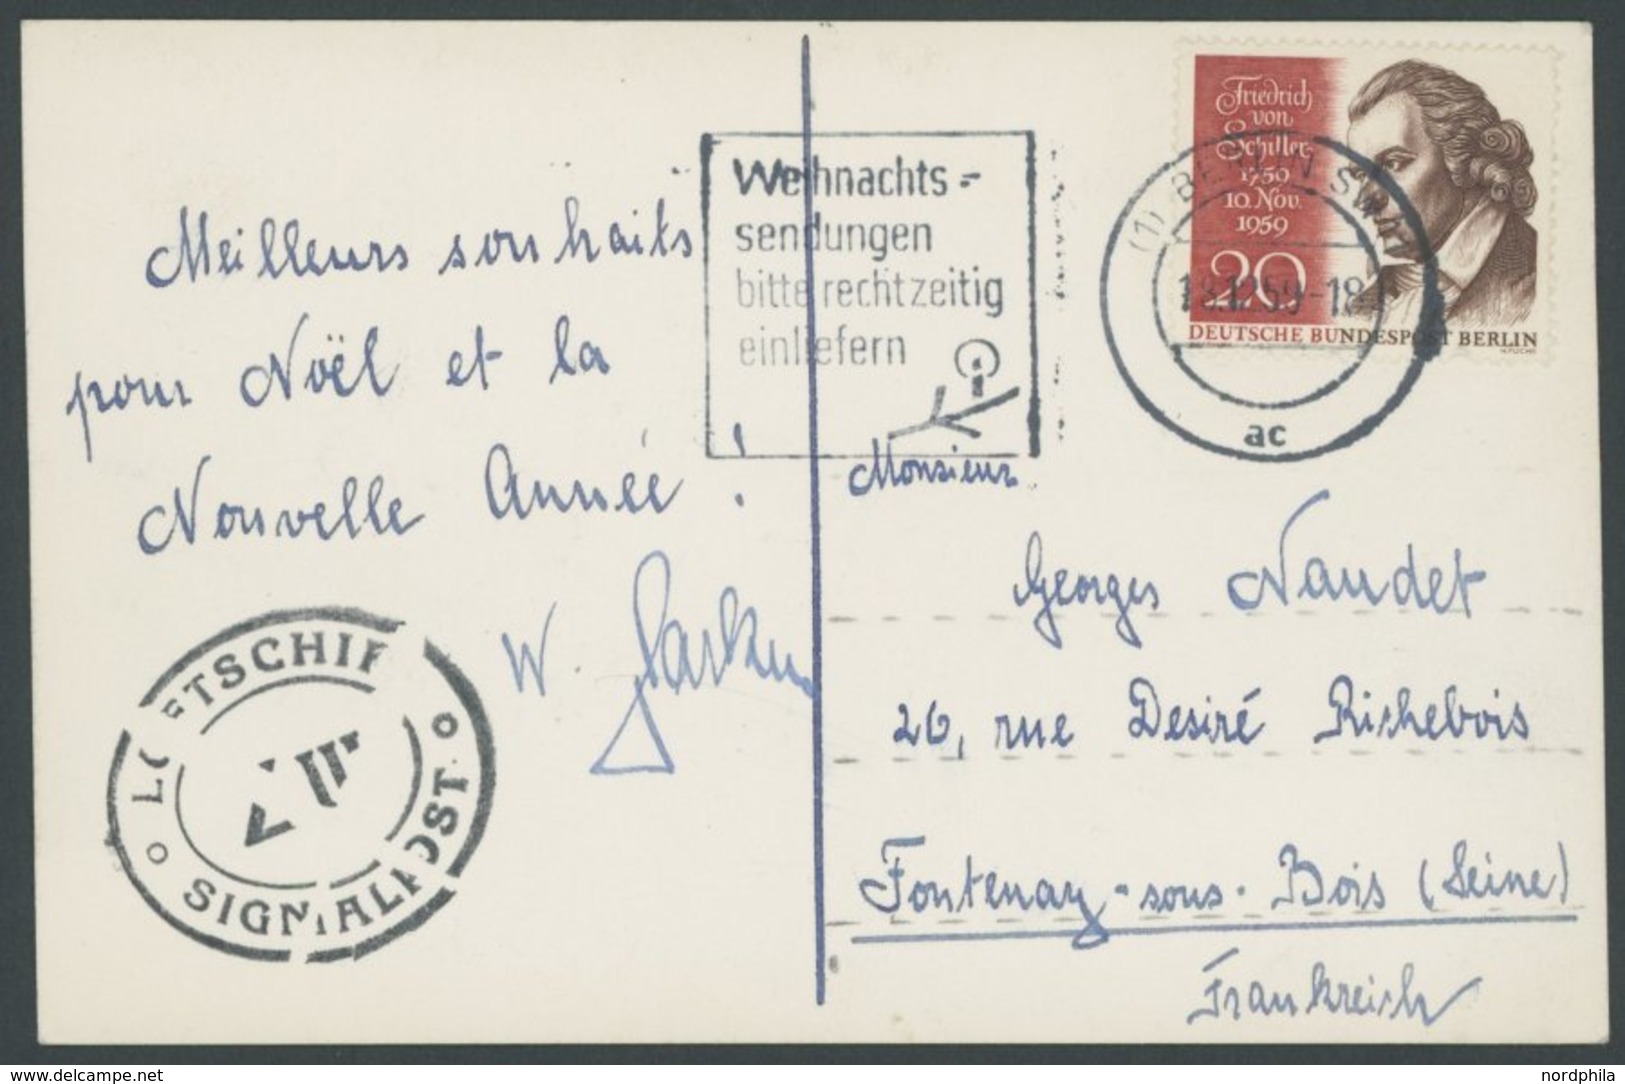 Meilleurs souhaits
pour Noël et la
Nouvelle Année !
W.
LUFTSCHIFF
SIGNALPOST
Weihnachts-
sendungen
bitte rechtzeitig
einliefern
Friedrich
von
Schiller
1759
10. Nov.
1959
20
DEUTSCHE BUNDESPOST BERLIN
(1) BERLIN SW
ac
Monsieur
Georges Naudet
26, rue Desiré Richebois
Fontenay-sous-Bois (Seine)
Frankreich
www.delcampe.net
nordphila